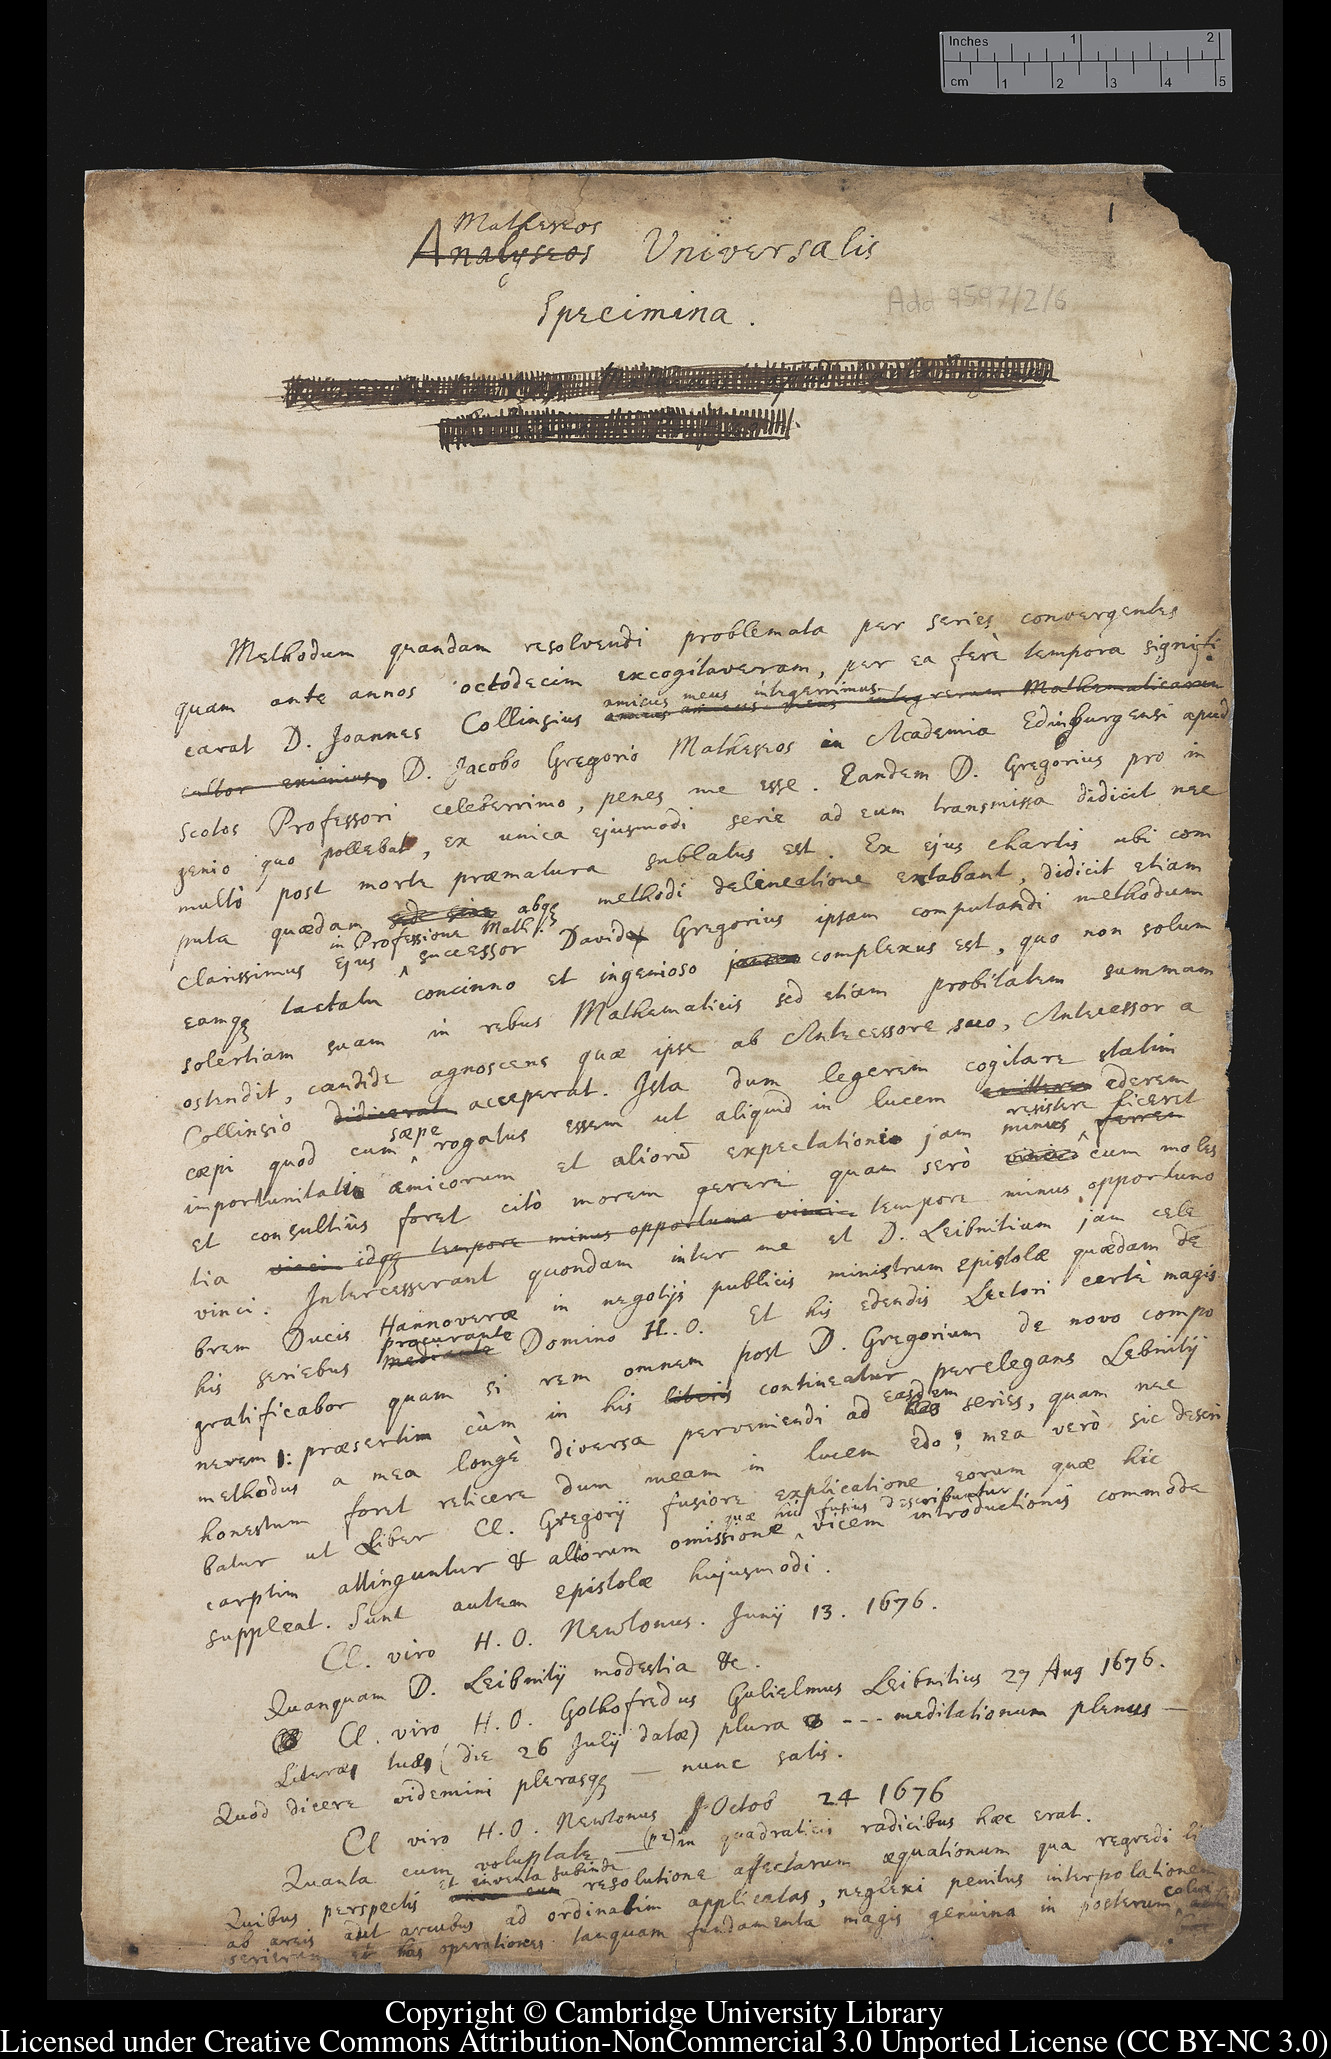 Inches 1 2
cm 1 2 3 4 5
1
Matheseos
Analyseos Universalis
Specimina.
Add 9597/2/6
Methodum quandam resolvendi problemata per series convergentes
quam ante annos octodecim excogitaveram, per ea ferè tempora signifi-
carat D. Joannes Collinsius amicus meus integerrimus
cultor eximius, D. Jacobo Gregorio Matheseos in Academia Edinburgensi apud
Scotos Professori celeberrimo, penes me esse. Eandem D. Gregorius pro in
genio quo pollebat, ex unica ejusmodi serie ad eum transmissa didicit nec
multò post morte præmatura sublatus est. Ex ejus chartis ubi com
puta quædam absqꝫ methodi delineatione extabant, didicit etiam
in Professione Math.
clarissimus ejus ^ successor David Gregorius ipsam computandi methodum
eamqꝫ tactatu concinno et ingenioso complexus est, quo non solum
solertiam suam in rebus Mathematicis sed etiam probitatem summam
ostendit, candide agnoscens quæ ipse ab Antecessore suo, Antecessor a
Collinsio didicerat acceperat. Ista dum legerem cogitare statim
cæpi quod cum ^ sæpe rogatus essem ut aliquid in lucem ederem
importunitati amicorum et aliorũ expectationi jam minus ^ resistere liceret
et consultiùs foret citò morem gerere quam serò cum moles
tia idqꝫ tempore minus opportuno vinci tempore minus opportuno
vinci. Intercesserant quondam inter me et D. Leibnitium jam cele
brem Ducis Hannoveræ in negotijs publicis ministrum epistolæ quædam de
his seriebus mediante procurante Domino H. O. Et his edendis Lectori certè magis
gratificabor quam si rem omnem post D. Gregorium de novo compo
nerem: præsertim cùm in his literis contineatur perelegans Lebnitij
methodus a mea longè diversa perveniendi ad has easdem series, quam nec
honestum foret reticere dum meam in lucem edo; mea verò sic descri
batur ut Liber Cl. Gregorij fusiore explicatione eorum quæ hic
carptim attinguntur & aliorum omissione ^ quæ hic fusius describuntur vicem introductionis commode
suppleat. Sunt autem epistolæ hujusmodi.
Cl. viro H. O. Newtonus. Junij 13. 1676.
Quanquam D. Leibnitij modestia &c.
Cl. viro H. O. Gothofredus Gulielmus Leibnitius 27 Aug 1676.
Literæ tuæ (die 26 Julij datæ) plura --- meditationum plenus —
Quod dicere videmini plerasqꝫ — nunc satis.
Cl viro H. O. Newtonus Octob 24 1676
Quanta cum voluptate — in quadraticis radicibus hæc erat.
Quibus perspectis et inventa subinde resolutione affectarum æquationum qua regredi li
ab areis aut arcubus ad ordinatim applicatas, neglexi penitus interpolationem
serierum et has operationes tanquam fundamenta magis genuina in posterum
Copyright © Cambridge University Library
Licensed under Creative Commons Attribution-NonCommercial 3.0 Unported License (CC BY-NC 3.0)